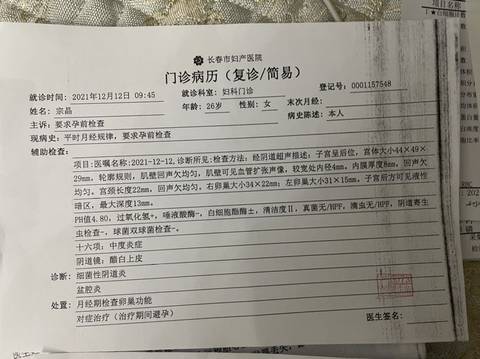 长春市妇产医院
门诊病历（复诊/简易）
就诊时间：2021年12月12日 09:45 就诊科室：妇科门诊 登记号：0001157548
姓名：宗晶 年龄：26岁 性别：女 末次月经：
主诉：要求孕前检查 病史陈述：本人
现病史：平时月经规律，要求孕前检查
辅助检查：
项目:医嘱名称:-2021-12-12,诊断所见:检查方法：经阴道超声描述：子宫呈后位，宫体大小44×49×
29mm，轮廓规则，肌壁回声欠均匀，肌壁可见血管扩张声像，较宽处内径4mm。内膜厚度8mm，回声欠
均匀。宫颈长度22mm，回声欠均匀。右卵巢大小34×22mm；左卵巢大小31×15mm。子宫后方可见液性
暗区，最大深度13mm。
PH值4.80，过氧化氢+，唾液酸酶-，白细胞酯酶±，清洁度Ⅱ，真菌无/HPF，滴虫无/HPF，阴道寄生
虫检查-，球菌双球菌检查-。
十六项：中度炎症
阴道镜：醋白上皮
诊断：细菌性阴道炎
盆腔炎
处置：月经期检查卵巢功能
对症治疗（治疗期间避孕）
医生签名：
项目名称